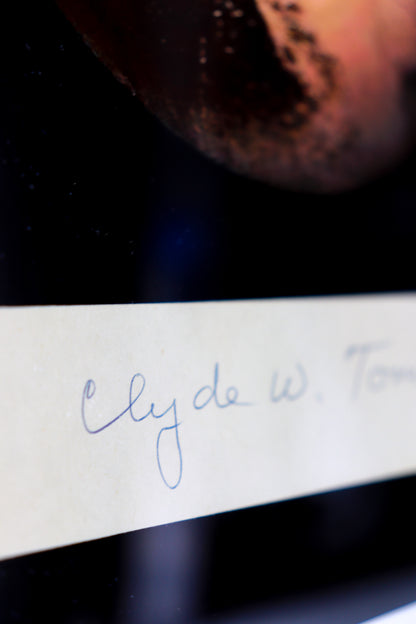 Clyde W. Tom